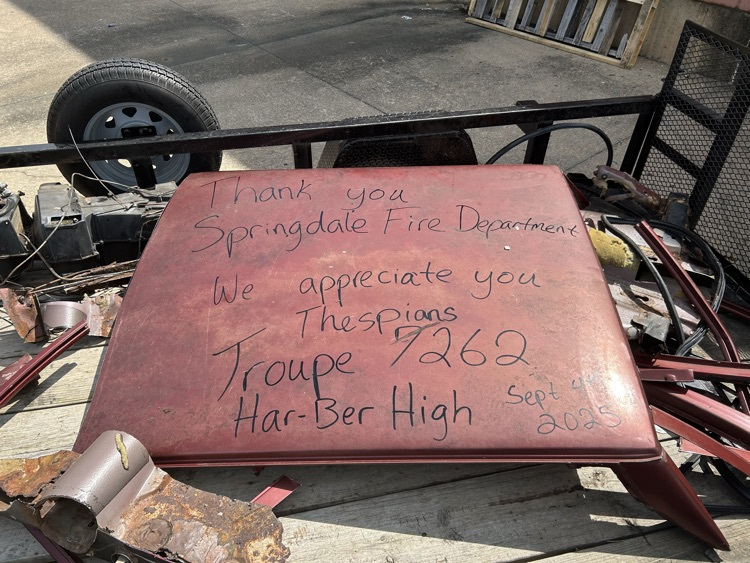 Thank you
Springdale Fire Department
We appreciate you
Thespians
Troupe 7262
Har-Ber High
Sept 4th
2025